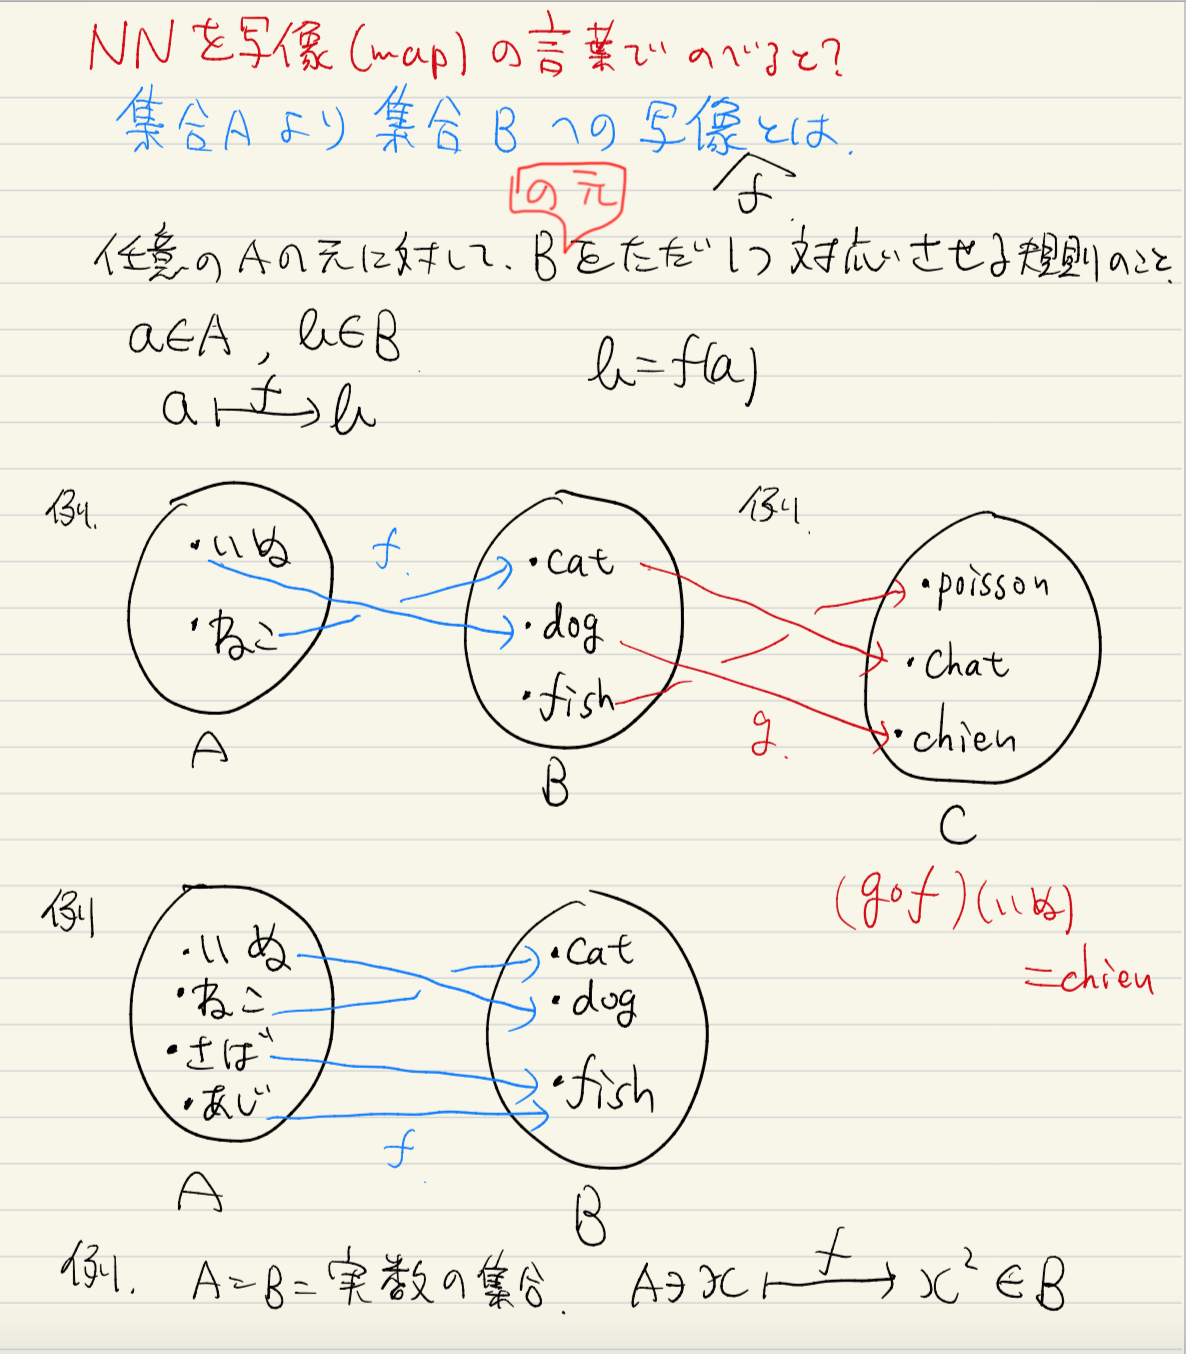 NNを写像(map)の言葉でのべると?
集合Aより集合Bへの写像とは.
の元
f
任意のAの元に対して、Bをただ1つ対応させる規則のこと.
a∈A , b∈B
b=f(a)
a ↦ b
f
例.
・いぬ
・ねこ
A
f
・cat
・dog
・fish
B
例.
・poisson
・chat
・chien
g
C
(g∘f)(いぬ)
=chien
例
・いぬ
・ねこ
・さば
・あじ
A
f
・cat
・dog
・fish
B
例. A=B=実数の集合. A∋x ↦ x² ∈B
f